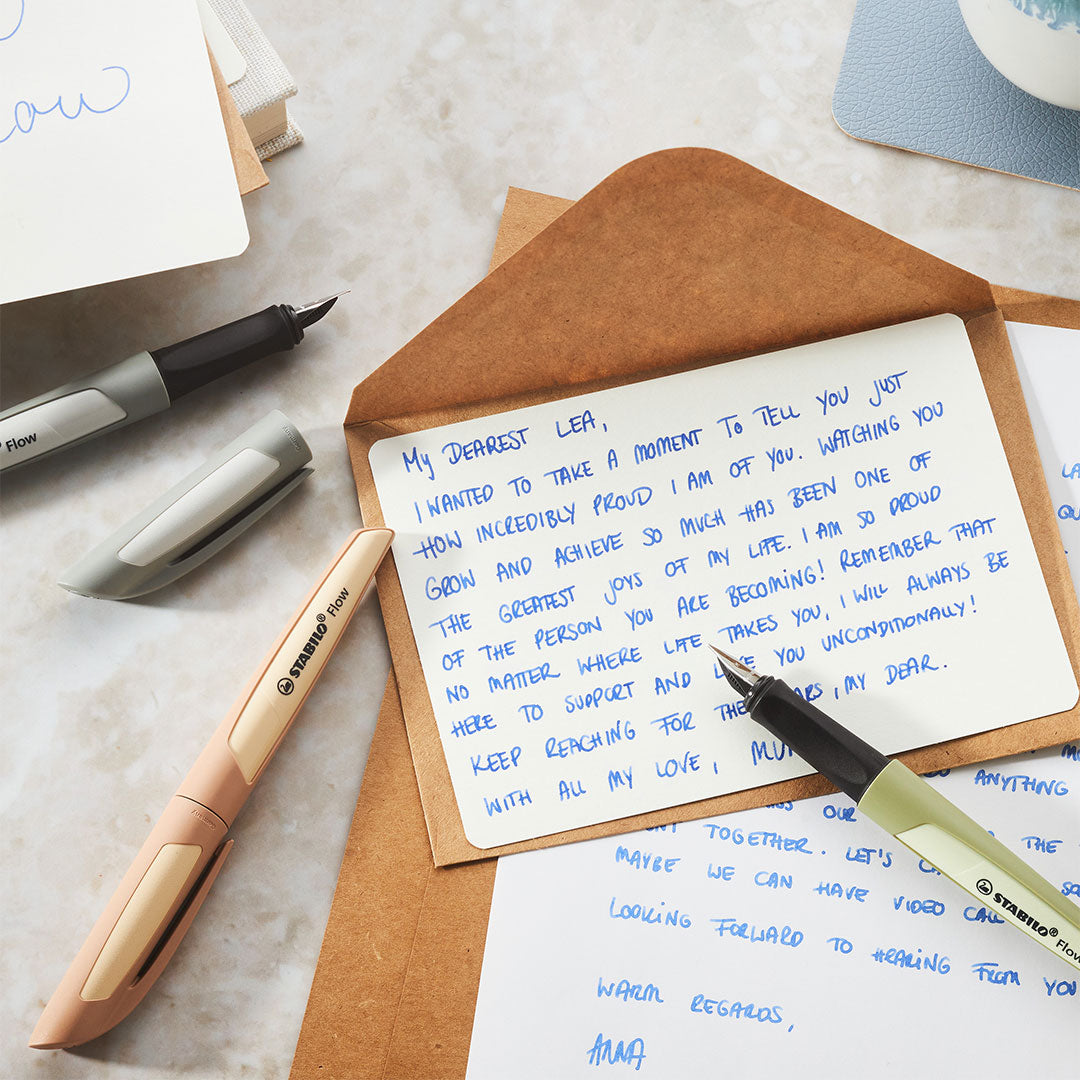 ow
Flow
MY DEAREST LEA,
I WANTED TO TAKE A MOMENT TO TELL YOU JUST
HOW INCREDIBLY PROUD I AM OF YOU. WATCHING YOU
GROW AND ACHIEVE SO MUCH HAS BEEN ONE OF
THE GREATEST JOYS OF MY LIFE. I AM SO PROUD
OF THE PERSON YOU ARE BECOMING! REMEMBER THAT
NO MATTER WHERE LIFE TAKES YOU, I WILL ALWAYS BE
HERE TO SUPPORT AND YOU UNCONDITIONALLY!
KEEP REACHING FOR , MY DEAR.
WITH ALL MY LOVE,
STABILO® Flow
STABILO® Flow
ANYTHING
OUR
TOGETHER. LET'S THE
MAYBE WE CAN HAVE VIDEO
LOOKING FORWARD TO HEARING FROM YOU
WARM REGARDS,
ANNA